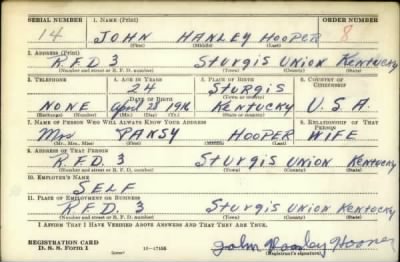 SERIAL NUMBER 1. NAME (Print) ORDER NUMBER
14 JOHN HANLEY HOOPER 8
(First) (Middle) (Last)
2. ADDRESS (Print)
R.F.D 3 Sturgis Union Kentucky
(Number and street or R. F. D. number) (Town) (County) (State)
3. TELEPHONE 4. AGE IN YEARS 5. PLACE OF BIRTH 6. COUNTRY OF CITIZENSHIP
24 Sturgis
DATE OF BIRTH (Town or county)
NONE April 28 1916 Kentucky U.S.A.
(Exchange) (Number) (Mo.) (Day) (Yr.) (State or country)
7. NAME OF PERSON WHO WILL ALWAYS KNOW YOUR ADDRESS 8. RELATIONSHIP OF THAT PERSON
Mrs PANSY HOOPER WIFE
(Mr., Mrs., Miss) (First) (Middle) (Last)
9. ADDRESS OF THAT PERSON
R.F.D. 3 Sturgis Union Kentucky
(Number and street or R. F. D. number) (Town) (County) (State)
10. EMPLOYER'S NAME
SELF
11. PLACE OF EMPLOYMENT OR BUSINESS
R.F.D. 3 Sturgis Union Kentucky
(Number and street or R. F. D. number) (Town) (County) (State)
I AFFIRM THAT I HAVE VERIFIED ABOVE ANSWERS AND THAT THEY ARE TRUE.
REGISTRATION CARD
D. S. S. Form 1 16—17105 John Hanley Hooper
(Registrant's signature)